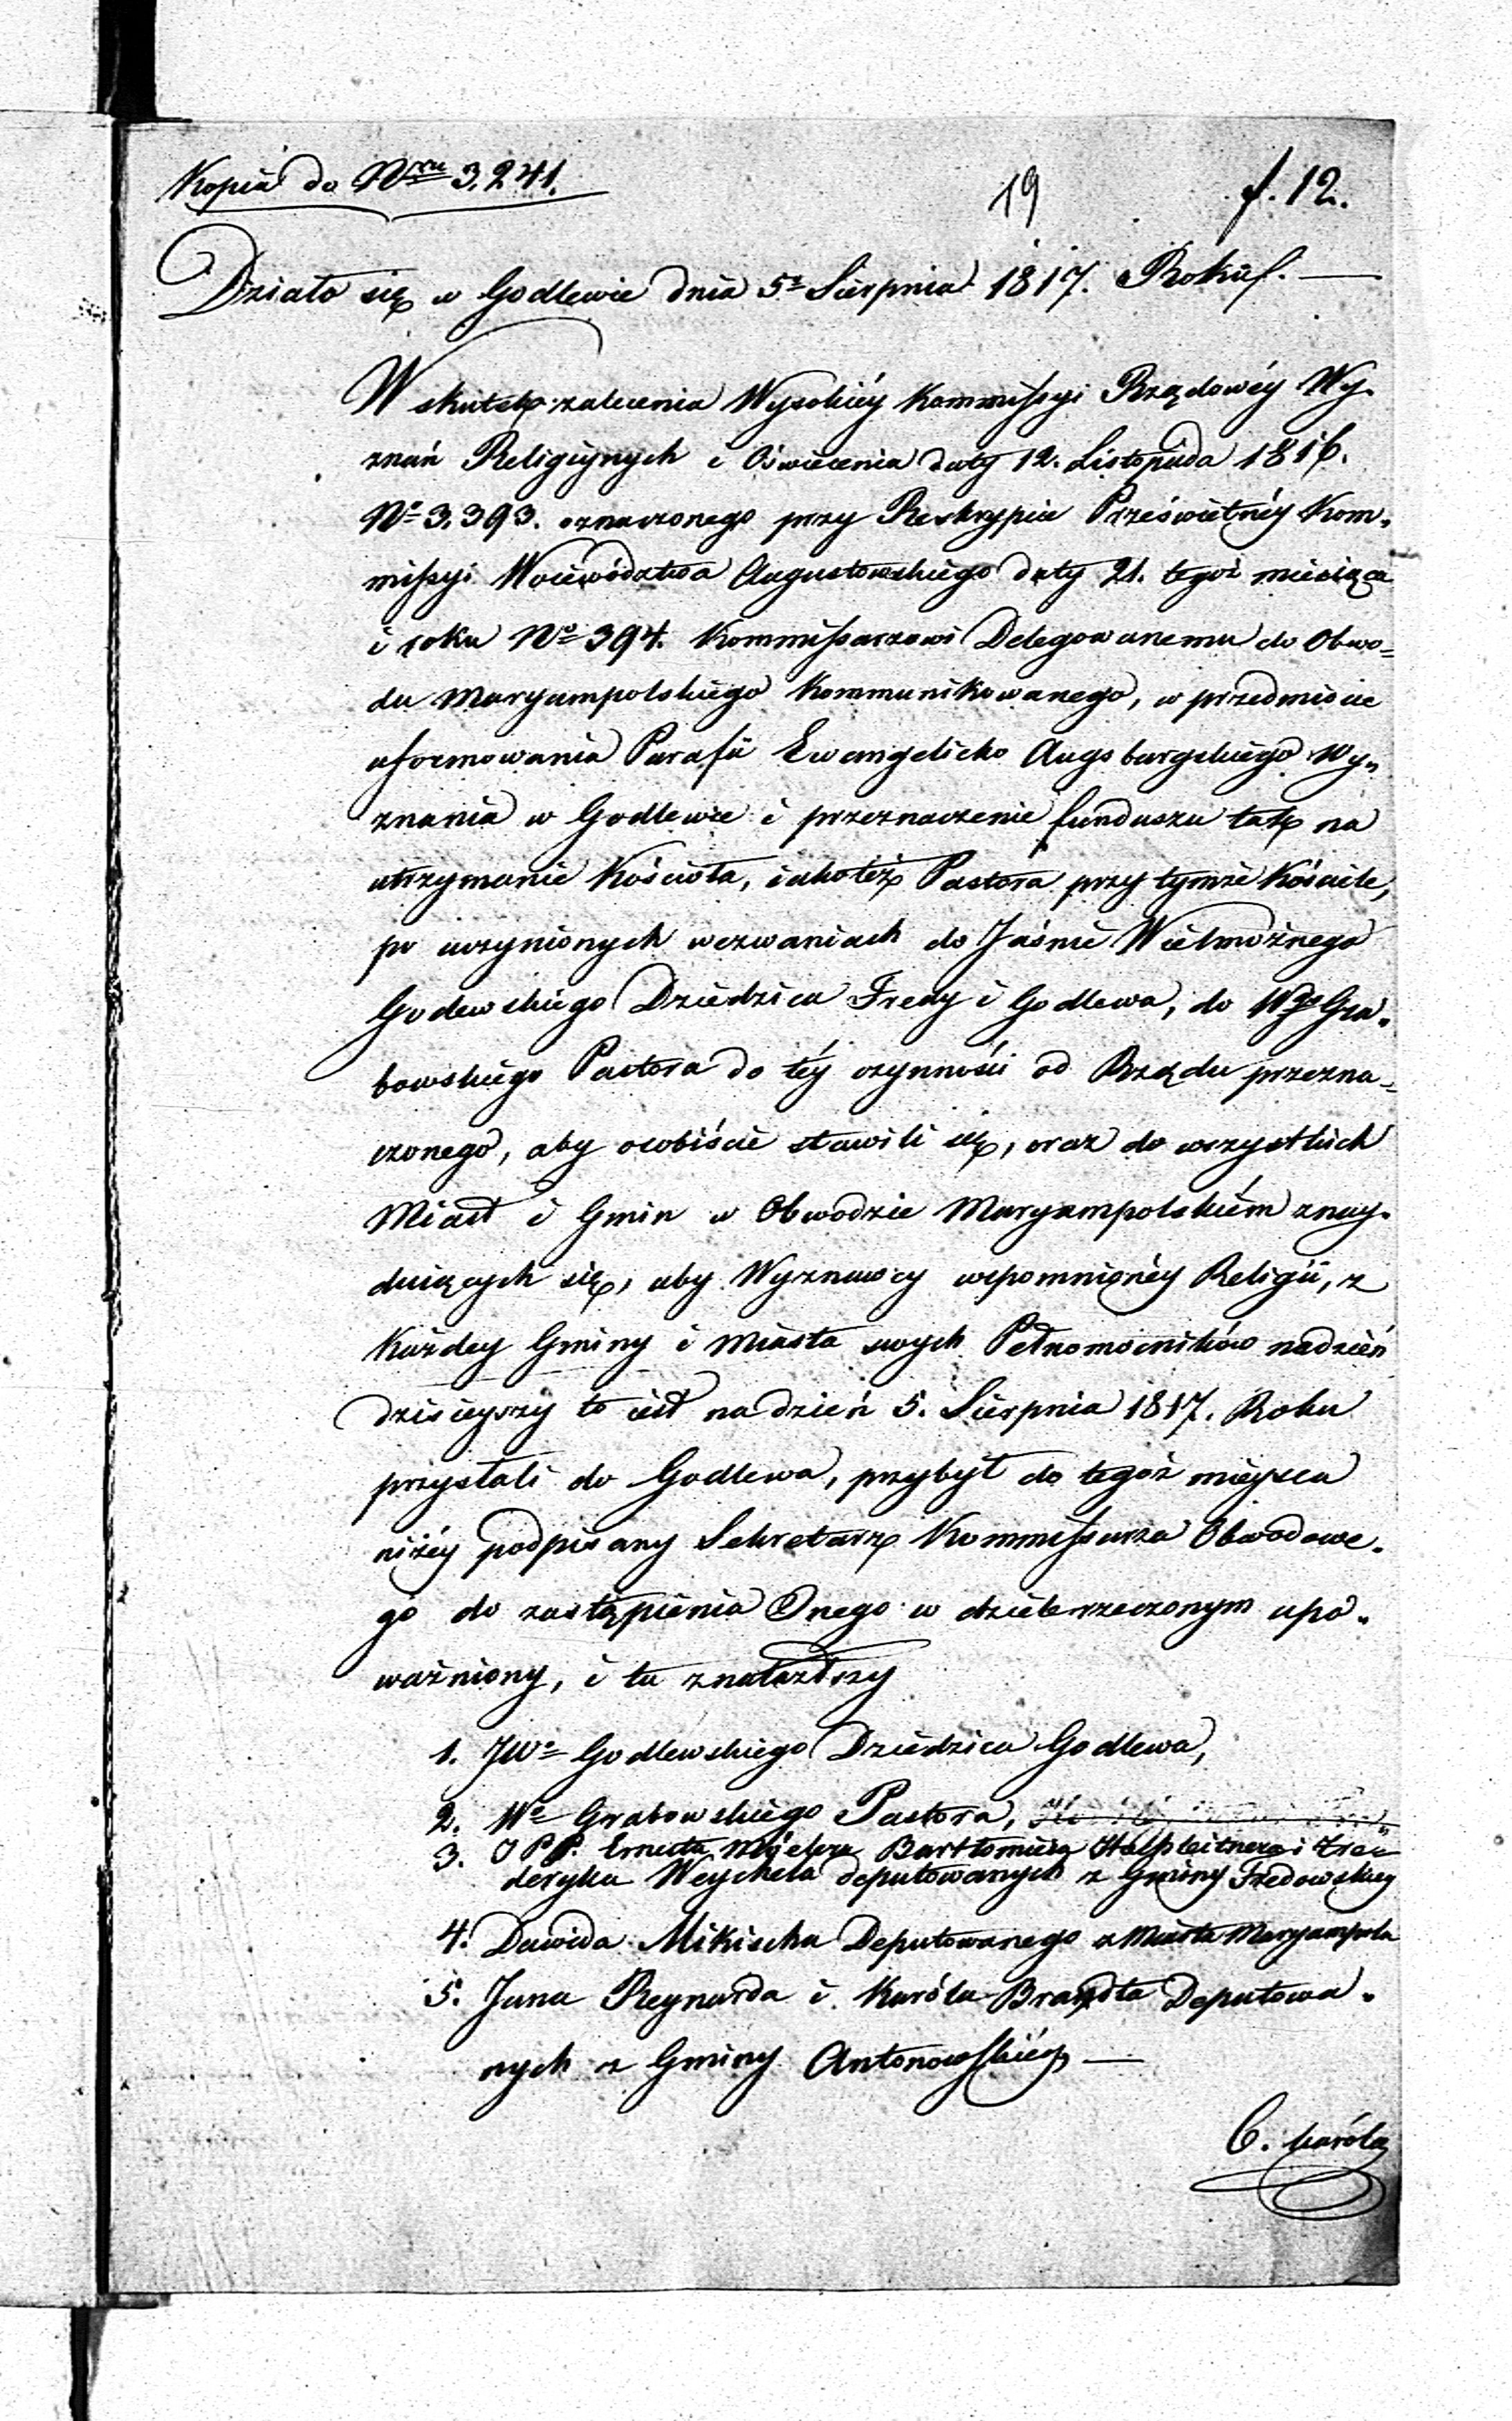 Kopia do Nru 3.241.
19
f. 12.
Działo się w Godlewie dnia 5º Sierpnia 1817. Roku. —
W skutek zalecenia Wysokiéy Kommissyi Rządowéy Wy-
znań Religiynych i Oświecenia daty 12. Listopada 1816.
Nº 3.393. oznaczonego przy Reskrypcie Prześwietnéy Kom-
missyi Woiewództwa Augustowskiego daty 21. tegoż miesiąca
i roku Nº 394. Kommissarzowi Delegowanemu do Obwo=
du Maryampolskiego kommunikowanego, w przedmiocie
uformowania Parafii Ewangelicko Augsburgskiego Wy=
znania w Godlewie i przeznaczenie funduszu tak na
utrzymanie Kościoła, iakoteż Pastora przy tymże Kościele,
po uczynionych wezwaniach do Jaśnie Wielmożnego
Godewskiego Dziedzica Fredy i Godlewa, do Wgo Gra-
bowskiego Pastora do téy czynności od Rządu przezna=
czonego, aby osobiście stawili się, oraz do wszystkich
Miast i Gmin w Obwodzie Maryampolskiém znay-
duiących się, aby Wyznawcy wspomnionéy Religii, z
każdey Gminy i Miasta swych Pełnomocników nadzień
dzisieyszy to iest na dzień 5. Sierpnia 1817. Roku
przysłali do Godlewa, przybył do tegoż mieysca
niżéy podpisany Sekretarz Kommissarza Obwodowe-
go do zastąpienia Onego w dziele rzeczonym upo-
ważniony, i tu znalazłszy
1. JWº Godlewskiego Dziedzica Godlewa,
2. Wº Grabowskiego Pastora,
3. JPP. Ernesta Bartłomieia Holpleitnera i Fre=
deryka Weychela deputowanych z Gminy Fredowskiey
4. Dawida Mikischa Deputowanego z Miasta Maryampola
5. Jana Reynarda i Karóla Brandta Deputowa-
nych z Gminy Antonowskiéy —
6. Karóla